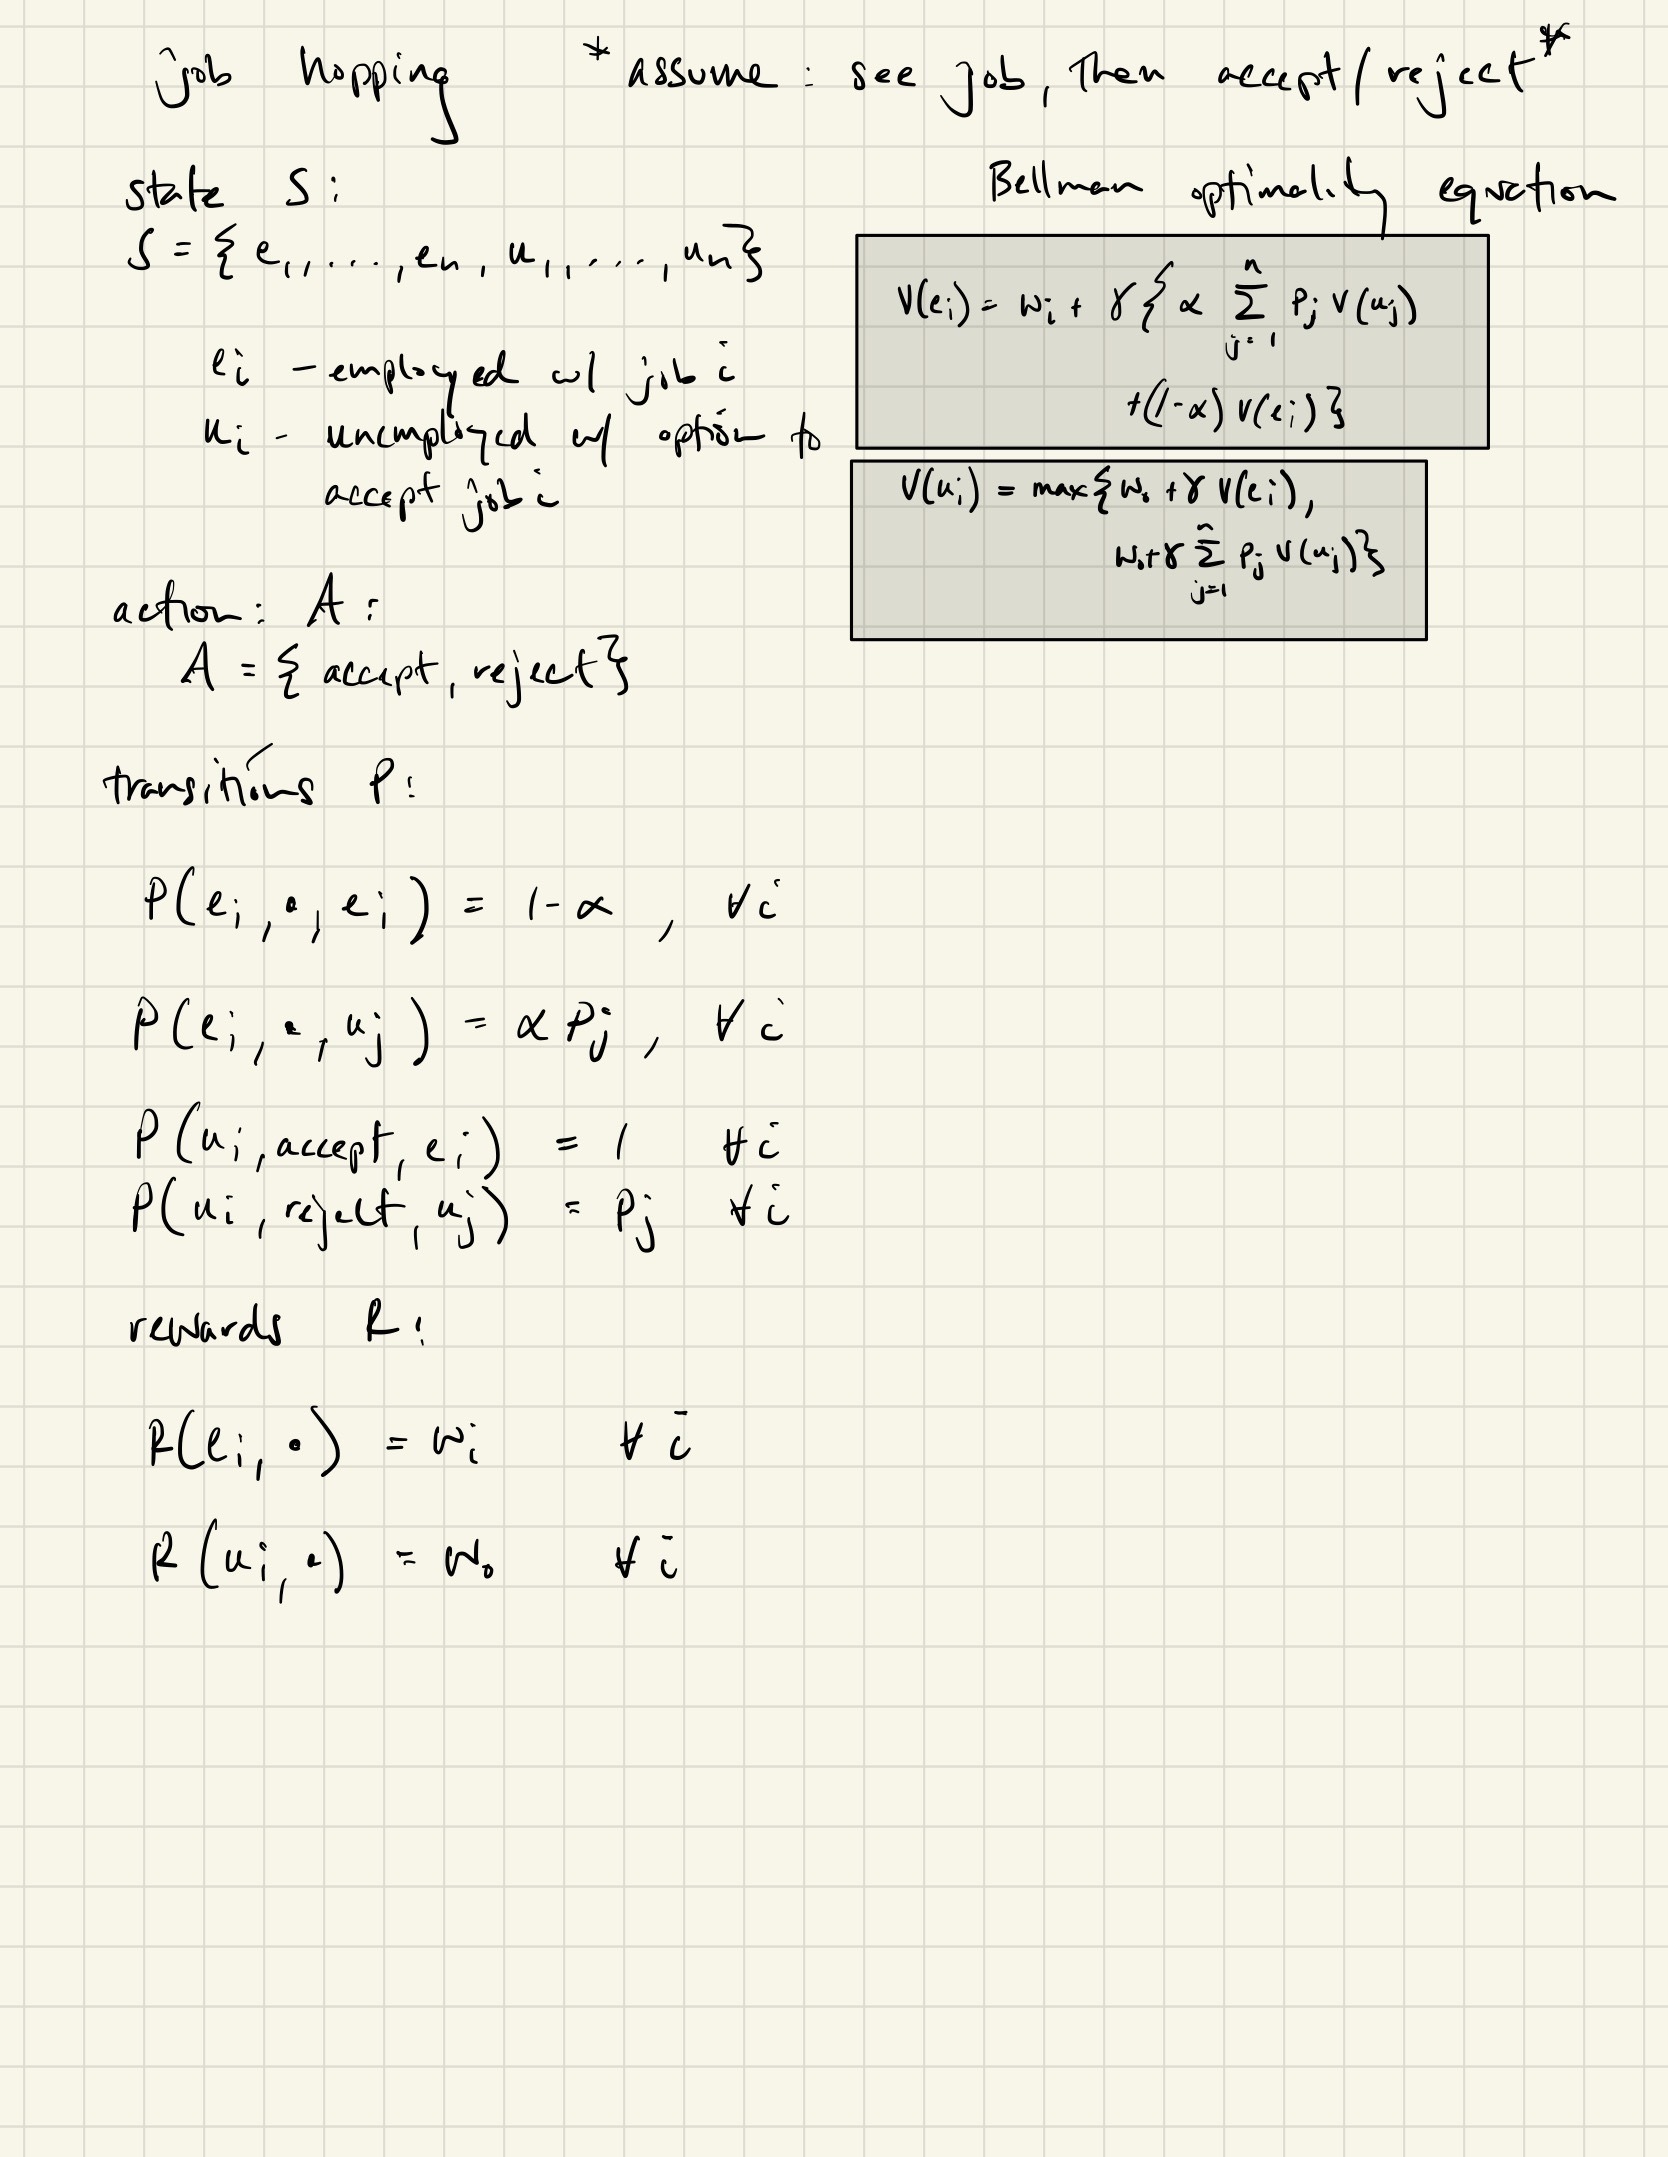 job hopping *assume: see job, then accept/reject*
state S:
S = { e₁, ..., eₙ, u₁, ..., uₙ}
eᵢ - employed w/ job i
uᵢ - unemployed w/ option to
accept job i
action: A:
A = { accept, reject }
transitions P:
P(eᵢ, •, eᵢ) = 1-α , ∀i
P(eᵢ, •, uⱼ) = α Pⱼ , ∀i
P(uᵢ, accept, eᵢ) = 1 ∀i
P(uᵢ, reject, uⱼ) = Pⱼ ∀i
rewards R:
R(eᵢ, •) = wᵢ ∀i
R(uᵢ, •) = w₀ ∀i
Bellman optimality equation
V(eᵢ) = wᵢ + γ { α ∑ⱼ₌₁ⁿ Pⱼ V(uⱼ)
+(1-α) V(eᵢ) }
V(uᵢ) = max{ w₀ + γ V(eᵢ),
w₀+γ ∑ⱼ₌₁ⁿ Pⱼ V(uⱼ)}